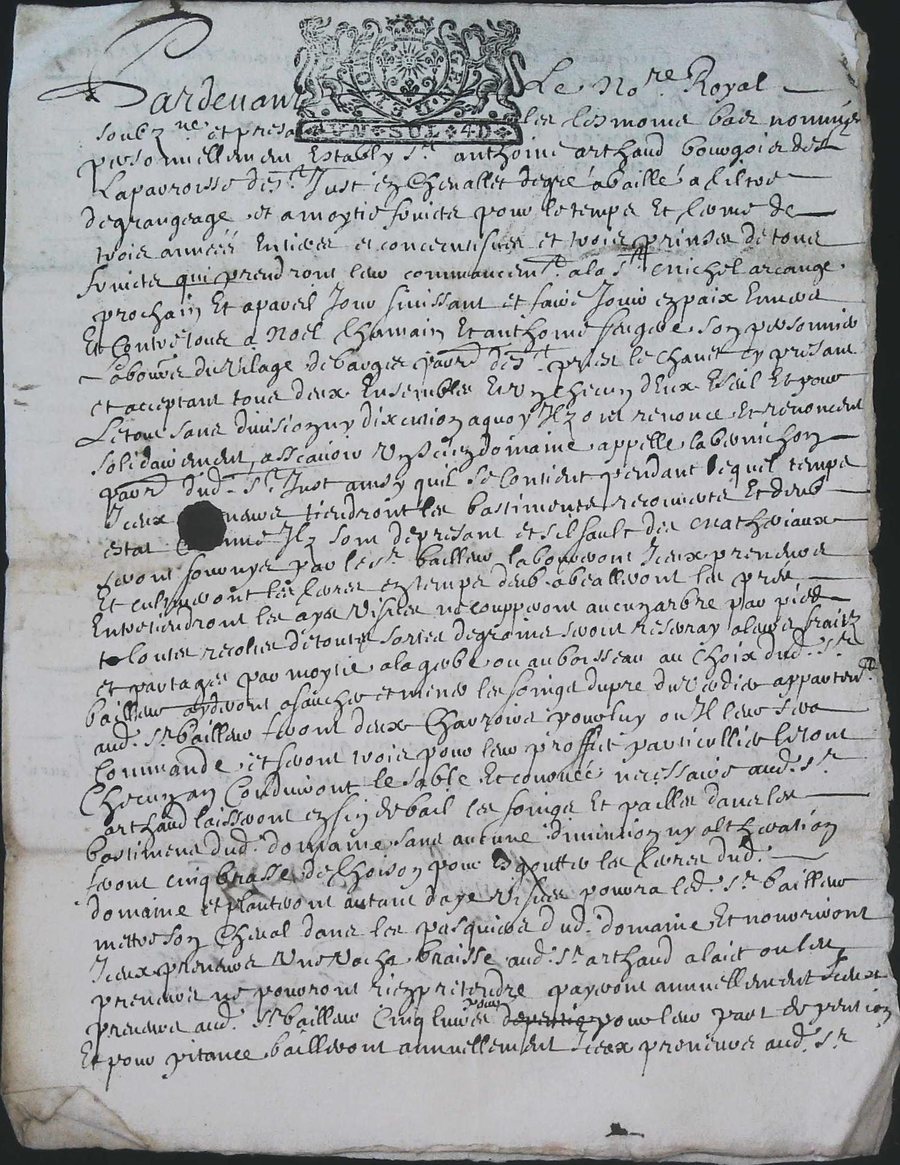 Pardevant Le No.re Royal
soubz.ne et presa les tesmoins bas nommés
personnellement Estably Sr anthoine arthaud bourgois de
La parroisse de St Just en Chevallet de gre a baillé a tiltre
de grangeage et a moytie fruicts pour le temps Et terme de
trois années Entieres et consecutifves et trois prinses de tous
fruicts qui prendront leur commancemt a la St michel arcange
prochain Et a pareil Jour finissant et faire Jouir en paix Envers
Et Contre tous a Noel Chamain Et anthoine son personnier
Laboureurs du Vilage de barges parr de St priest le Chanet cy presant
et acceptant tous deux Ensembles Et Un checun d'Eux seul Et pour
Le tout sans division ny dixcution a quoy Ilz ont renonce Et renoncent
solidairement, asscavoir Un sien domaine appelle la bernichon
parr dud. St Just ainsy quil se Contient pendant lequel temps
Iceux neurs tiendront les bastiments recouverts Et deub
estat Comme Ilz sont de presant et s'il fault des matheriaux
seront fournys par le sr bailleur labourront Iceux preneurs
Et cultiveront les terres en temps deub abealleront les prés
Entretiendront les ayes vifves ne coupperont aucun arbre par pied
toutes recoltes de toutes sortes de grains seront a leurs fraitz
et partages par moytie a la gerbe ou au boisseau au Choix dud. Sr
bailleur aydront a faucher et mener les foings du pre du Verdier appartent
aud. Sr bailleur feront deux Charrois pour luy ou Il leur sera
Commande et feront trois pour leur proffit particullier feront
Checun an Conduiront le sable Et necessaire aud. Sr
arthaud laisseront en fin de bail les foings Et pailles dans les
bastimens dud. domaine sans aucune diminution ny altheration
feront cinq brasse de pour Esgoutter les terres dud.
domaine et planteront autant d'aye vifves pourra led. Sr bailleur
mettre son Cheval dans les pasquiers dud. domaine Et nourriront
Iceux preneurs Une Vache braisse aud. Sr arthaud a laict ou les
preneurs ne pourront rien pretendre payeront annuellement Iceux
preneurs aud. Sr bailleur Cinq livres pour leur part de pention
Et pour pitance bailleront annuellement Iceux preneurs aud. Sr
UN SOL 4D